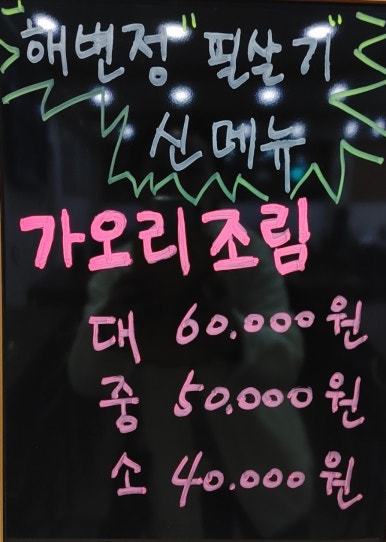 해변정 "필살기"
신메뉴
가오리조림
대 60.000원
중 50.000원
소 40.000원